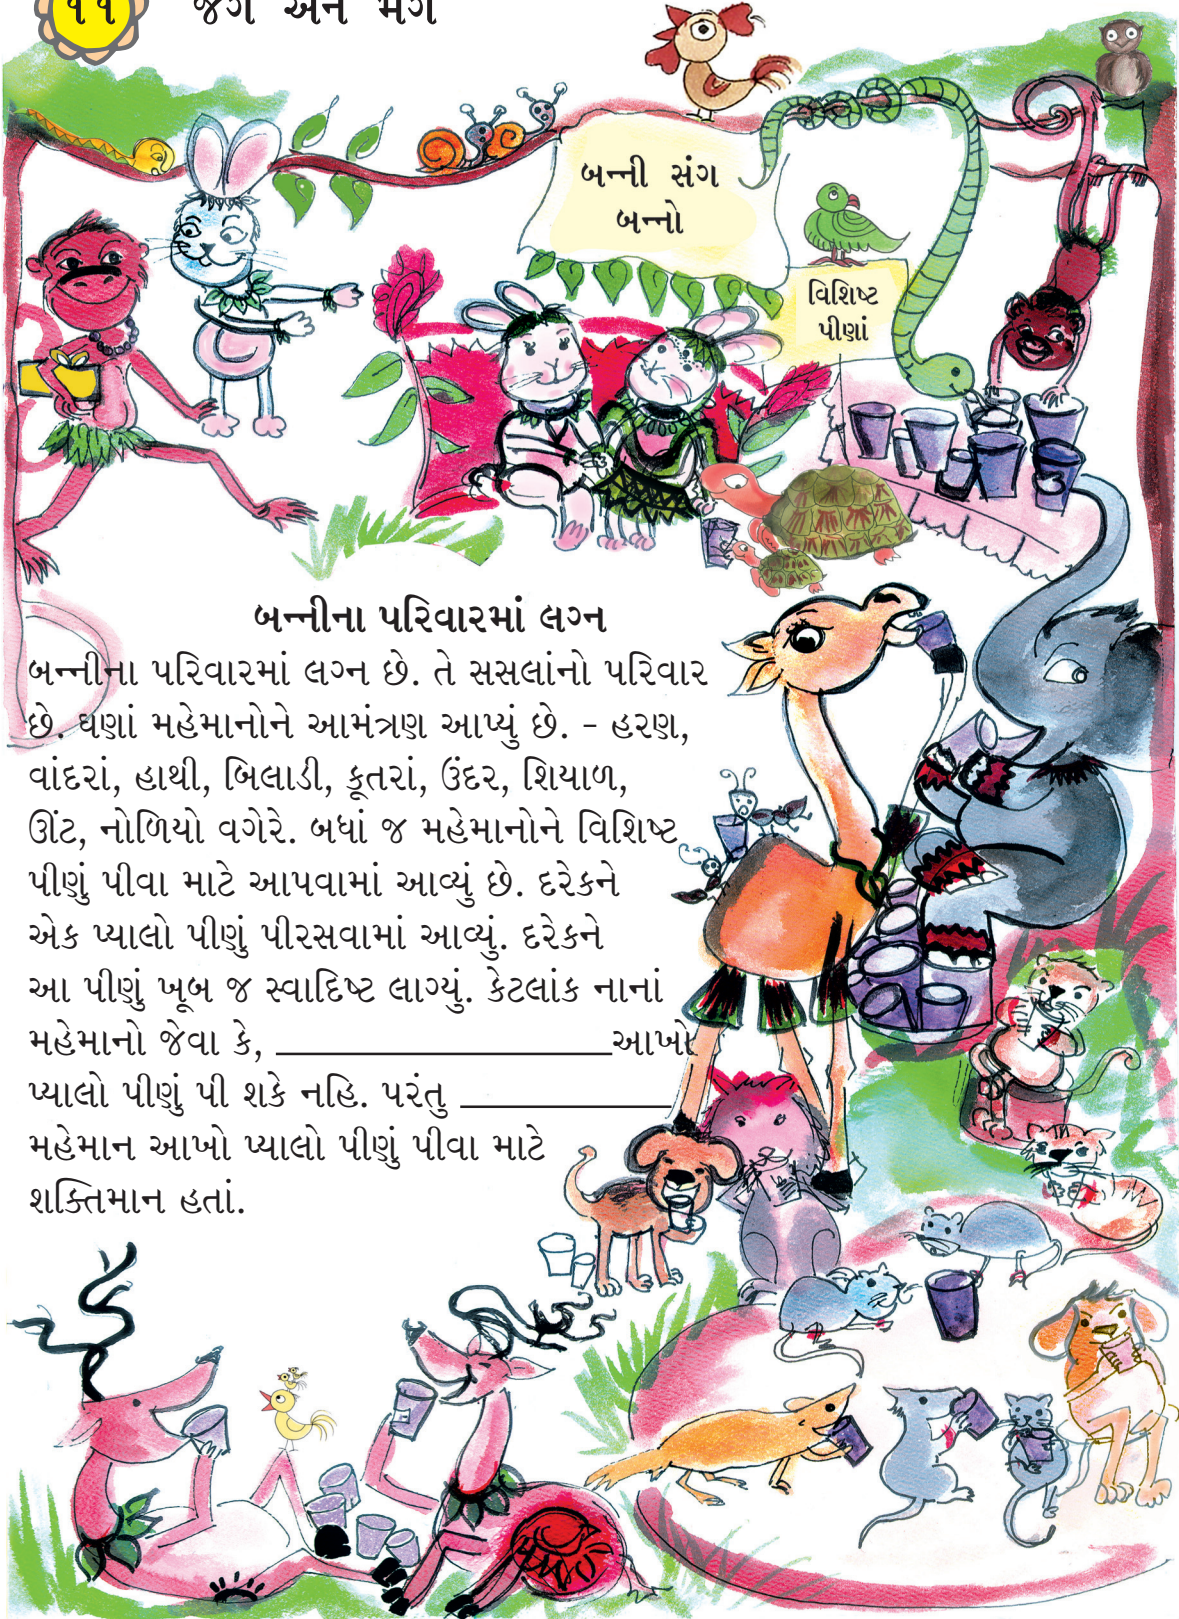 ૧૧ જગ અને મગ
બન્ની સંગ
બન્નો
વિશિષ્ટ
પીણાં
બન્નીના પરિવારમાં લગ્ન
બન્નીના પરિવારમાં લગ્ન છે. તે સસલાંનો પરિવાર
છે. ઘણાં મહેમાનોને આમંત્રણ આપ્યું છે. - હરણ,
વાંદરાં, હાથી, બિલાડી, કૂતરાં, ઉંદર, શિયાળ,
ઊંટ, નોળિયો વગેરે. બધાં જ મહેમાનોને વિશિષ્ટ
પીણું પીવા માટે આપવામાં આવ્યું છે. દરેકને
એક પ્યાલો પીણું પીરસવામાં આવ્યું. દરેકને
આ પીણું ખૂબ જ સ્વાદિષ્ટ લાગ્યું. કેટલાંક નાનાં
મહેમાનો જેવા કે, ____________________ આખો
પ્યાલો પીણું પી શકે નહિ. પરંતુ ____________
મહેમાન આખો પ્યાલો પીણું પીવા માટે
શક્તિમાન હતાં.